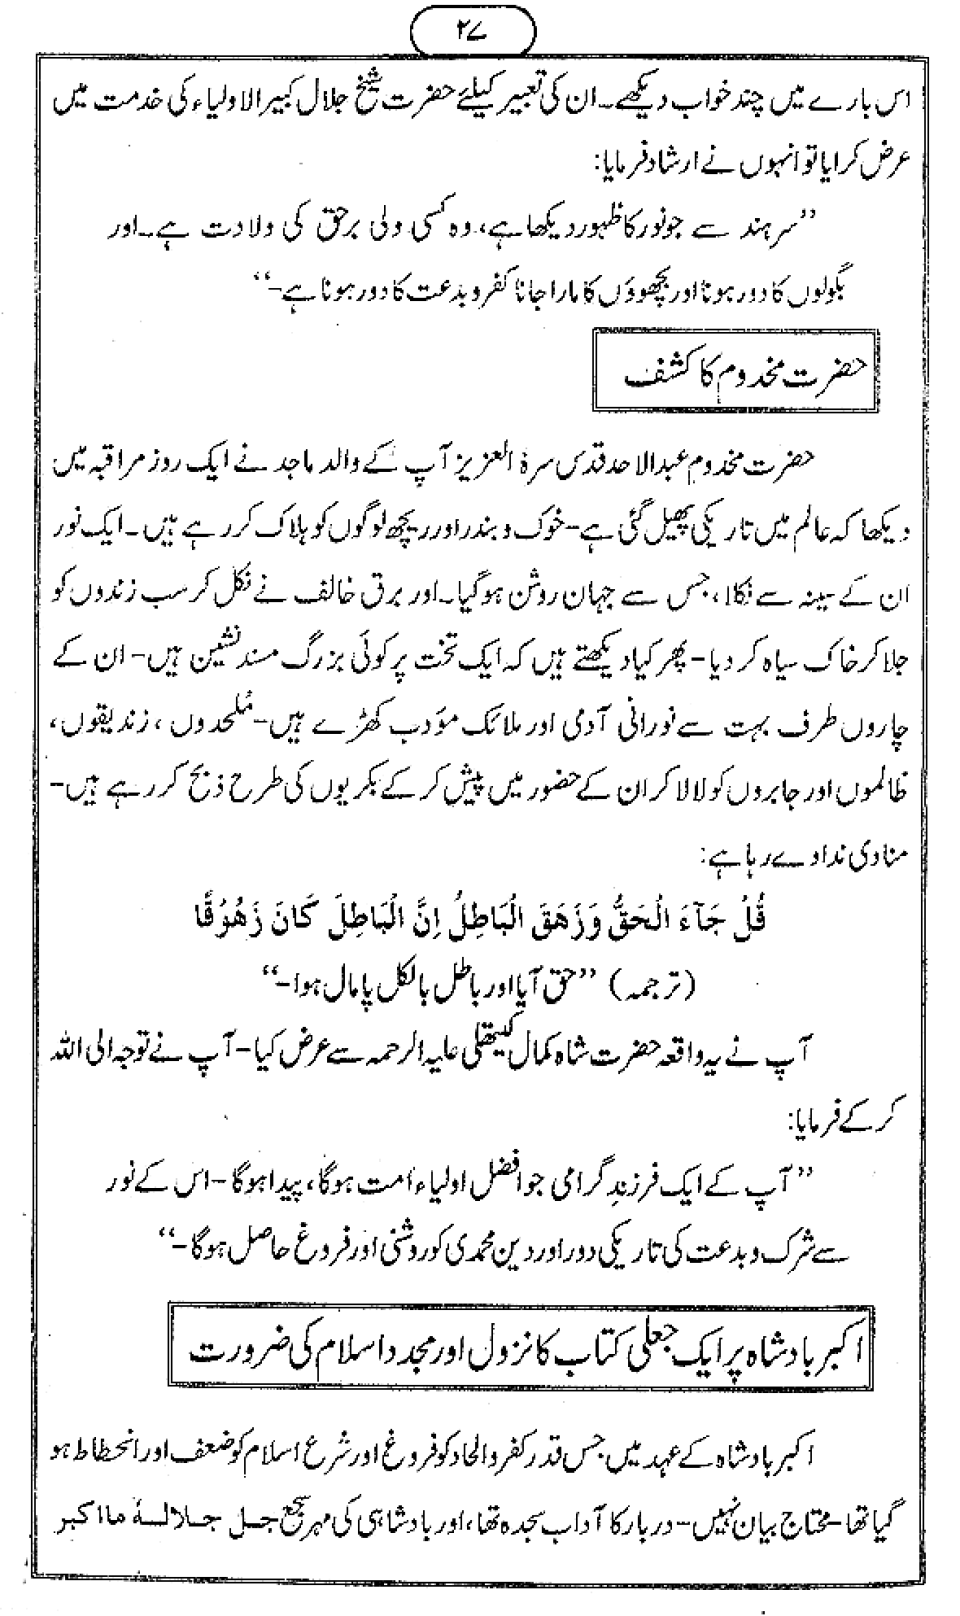 ۲۷
اس بارے میں چند خواب دیکھے۔ ان کی تعبیر کیلئے حضرت شیخ جلال کبیر الاولیاء کی خدمت میں
عرض کرایا تو انہوں نے ارشاد فرمایا:
”سرہند سے جو نور کا ظہور دیکھا ہے، وہ کسی ولی برحق کی ولادت ہے۔ اور
بگولوں کا دور ہونا اور بچھوؤں کا مارا جانا کفر و بدعت کا دور ہونا ہے-“
حضرت مخدوم کا کشف
حضرت مخدوم عبدالاحد قدس سرہٗ العزیز آپ کے والد ماجد نے ایک روز مراقبہ میں
دیکھا کہ عالم میں تاریکی پھیل گئی ہے- خوک و بندر اور ریچھ لوگوں کو ہلاک کر رہے ہیں۔ ایک نور
ان کے سینہ سے نکلا، جس سے جہان روشن ہوگیا۔ اور برق خالف نے نکل کر سب زندوں کو
جلا کر خاک سیاہ کر دیا- پھر کیا دیکھتے ہیں کہ ایک تخت پر کوئی بزرگ مسند نشین ہیں- ان کے
چاروں طرف بہت سے نورانی آدمی اور ملائک مؤدب کھڑے ہیں- مُلحدوں، زندیقوں،
ظالموں اور جابروں کو لا لا کر ان کے حضور میں پیش کر کے بکریوں کی طرح ذبح کر رہے ہیں-
منادی ندا دے رہا ہے:
قُلْ جَآءَ الْحَقُّ وَزَهَقَ الْبَاطِلُ اِنَّ الْبَاطِلَ كَانَ زَهُوْقًا
(ترجمہ) ”حق آیا اور باطل بالکل پامال ہوا-“
آپ نے یہ واقعہ حضرت شاہ کمال کیتھلی علیہ الرحمہ سے عرض کیا- آپ نے توجہ الی اللہ
کر کے فرمایا:
”آپ کے ایک فرزندِ گرامی جو افضل اولیاء امت ہوگا، پیدا ہوگا- اس کے نور
سے شرک و بدعت کی تاریکی دور اور دین محمدی کو روشنی اور فروغ حاصل ہوگا-“
اکبر بادشاہ پر ایک جعلی کتاب کا نزول اور مجدد اسلام کی ضرورت
اکبر بادشاہ کے عہد میں جس قدر کفر و الحاد کو فروغ اور شرع اسلام کو ضعف اور انحطاط ہو
گیا تھا- محتاج بیان نہیں- دربار کا آداب سجدہ تھا، اور بادشاہی کی مہر سجع جل جلالہٗ ما اکبر